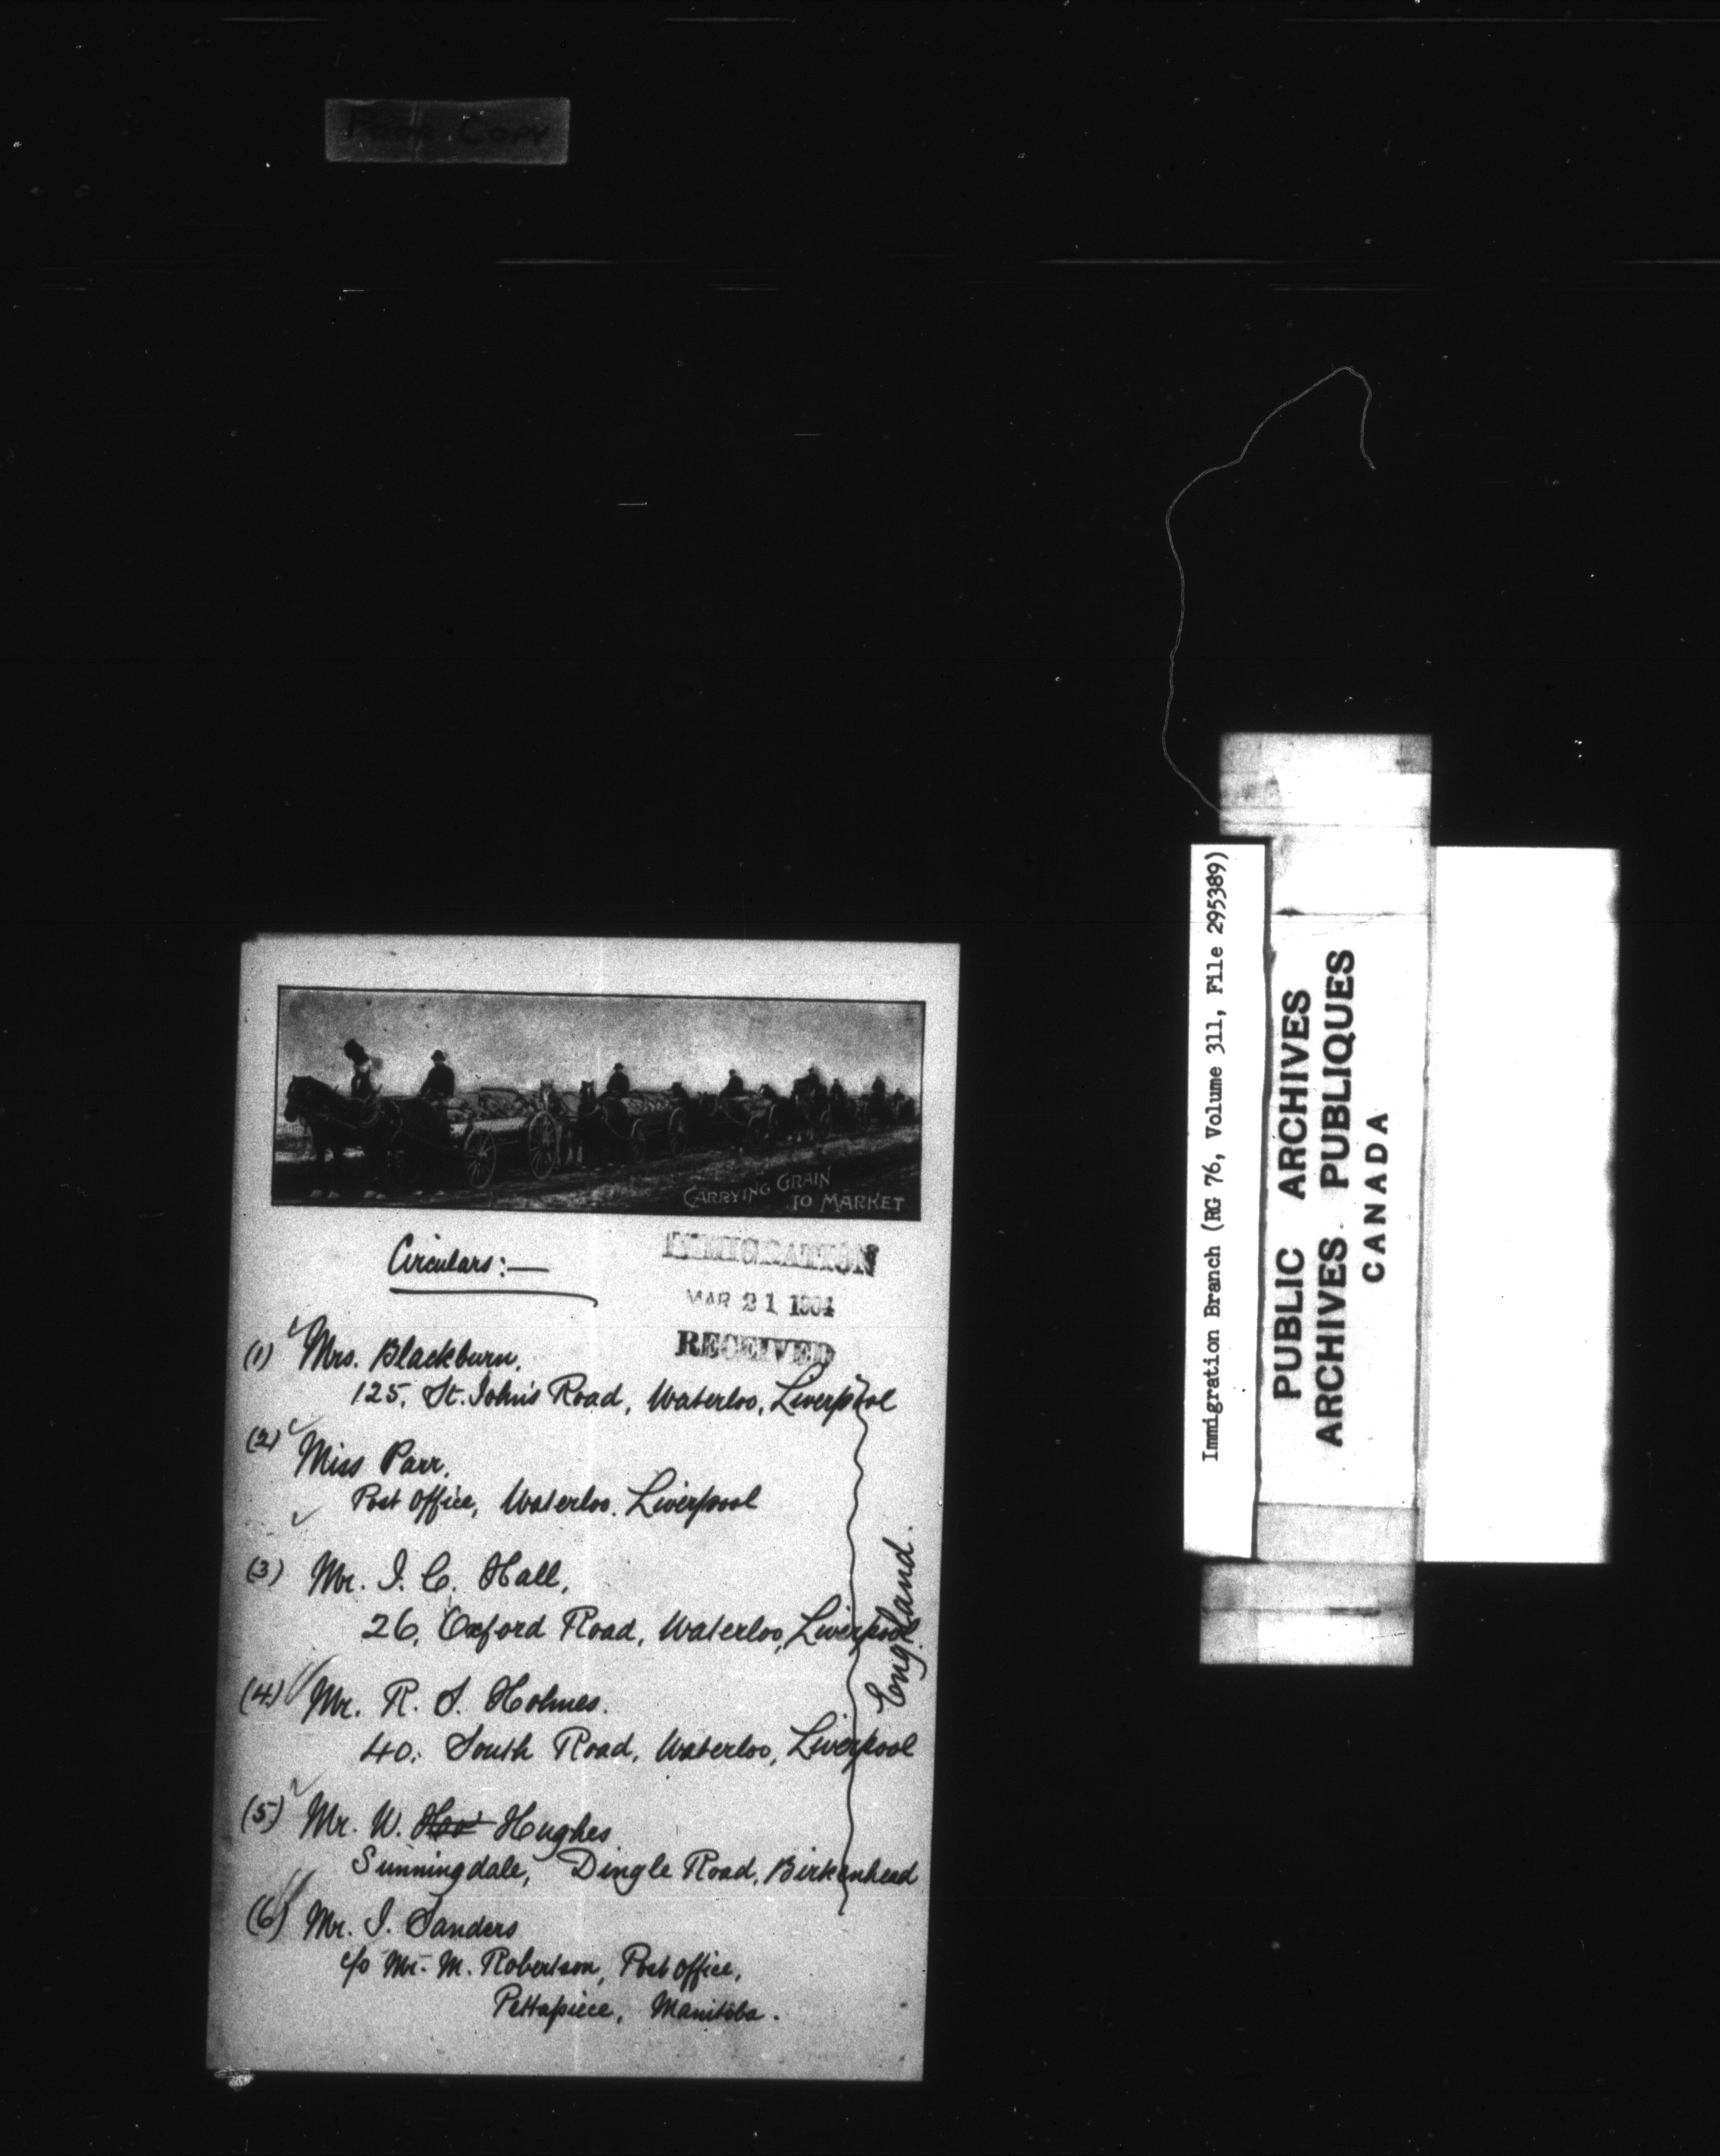 Poor Copy
CARRYING GRAIN
TO MARKET
Circulars:—
IMMIGRATION
MAR 21 1904
RECEIVED
(1) Mrs. Blackburn,
125, St. John's Road, Waterloo, Liverpool
(2) Miss Parr,
Post Office, Waterloo. Liverpool
(3) Mr. I. C. Hall,
26, Oxford Road, Waterloo, Liverpool
(4) Mr. R. S. Holmes.
40, South Road, Waterloo, Liverpool
(5) Mr. W. Hughes
Sunningdale, Dingle Road, Birkenhead
England.
(6) Mr. I. Sanders
c/o Mr. M. Robertson, Post Office,
Pettapiece, Manitoba.
Immigration Branch (RG 76, Volume 311, File 295389)
PUBLIC ARCHIVES
ARCHIVES PUBLIQUES
CANADA